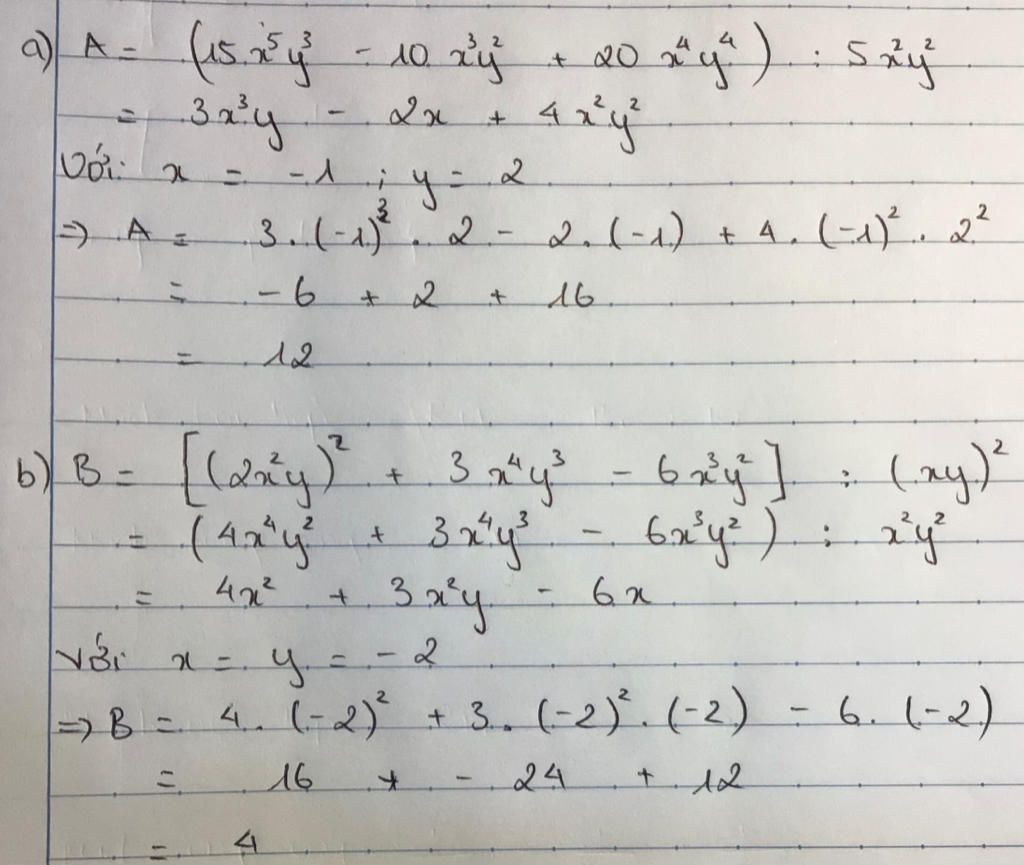 a) A = (15x⁵y³ - 10x³y² + 20x⁴y⁴) : 5x²y²
= 3x³y - 2x + 4x²y²
Với: x = -1 ; y = 2
=> A = 3.(-1)³.2 - 2.(-1) + 4.(-1)².2²
= -6 + 2 + 16
= 12
b) B = [(2x²y)² + 3x⁴y³ - 6x³y²] : (xy)²
= (4x⁴y² + 3x⁴y³ - 6x³y²) : x²y²
= 4x² + 3x²y - 6x
Với x = y = -2
=> B = 4.(-2)² + 3.(-2)².(-2) - 6.(-2)
= 16 + - 24 + 12
= 4